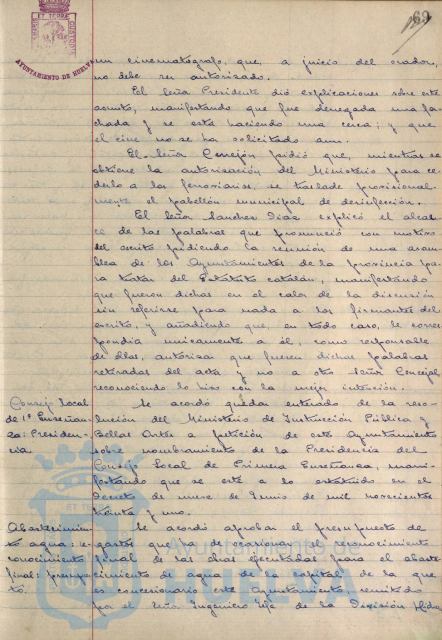 69
AYUNTAMIENTO DE HUELVA
un cinematógrafo, que, a juicio del orador,
no debe ser autorizado.
El Señor Presidente dió explicaciones sobre este
asunto, manifestando que fue denegada una fa-
chada y se está haciendo una cerca; y que
el cine no se ha solicitado aun.
El Señor Concejón pidió que, mientras se
obtiene la autorización del Ministerio para ce-
derlo a los ferroviarios, se traslade provisional-
mente el pabellón municipal de desinfección.
El Señor Sanchez Diaz explicó el alcan-
ce de las palabras que pronunció con motivo
del escrito pidiendo la reunión de una asam-
blea de los Ayuntamientos de la provincia pa-
ra tratar del Estatuto catalán, manifestando
que fueron dichas en el calor de la discusión
sin referirse para nada a los firmantes del
escrito, y añadiendo que, en todo caso, le corres-
pondia unicamente a él, como responsable
de ellas, autorizar que fueren dichas palabras
retiradas del acta y no a otro Señor Concejal
reconociendo lo hizo con la mejor intención.
Consejo Local
de 1ª Enseñan-
za: Presiden-
cia.
Se acordó quedar enterado de la reso-
lución del Ministerio de Instrucción Pública y
Bellas Artes a petición de este Ayuntamiento
sobre nombramiento de la Presidencia del
Consejo Local de Primera Enseñanza, mani-
festando que se esté a lo estatuido en el
Decreto de nueve de Junio de mil novecientos
treinta y uno.
Abastecimien-
to agua: re-
conocimiento
final: presupues-
to.
Se acordó aprobar el presupuesto de
gastos que ha de ocasionar el reconocimiento
final de las obras ejecutadas para el abaste-
cimiento de agua de la capital, de la que
es concesionario este Ayuntamiento, remitido
por el Señor Ingeniero Jefe de la División Hidra
Ayuntamiento de
HUELVA